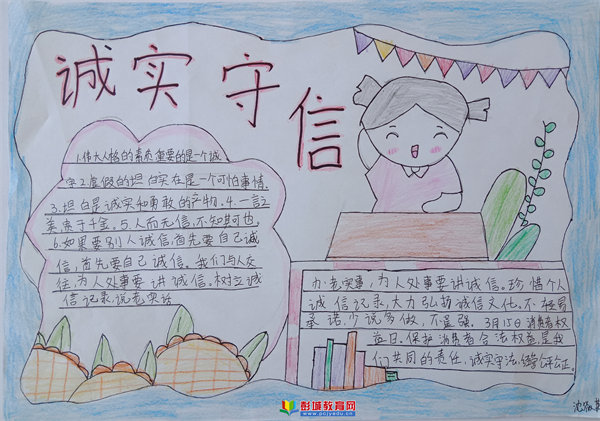 诚实守信
1.伟大人格的素质重要的是一个诚
字2.虚假的坦白实在是一个可怕事情.
3.坦白是诚实和勇敢的产物.4.一言之
美贵于千金.5.人而无信,不知其可也.
6.如果要别人诚信,首先要自己诚
信,首先要自己诚信。我们与人交
往,为人处事要讲诚信。树立诚
信记录,说老实话
办老实事,为人处事要讲诚信。珍惜个人
诚信记录,大力弘扬诚信文化。不轻易
承诺,少说多做,不逞强。3月15日消费者权
益日。保护消费者合法权益是我
们共同的责任,诚实守法,
彭城教育网
www.pcjyedu.cn